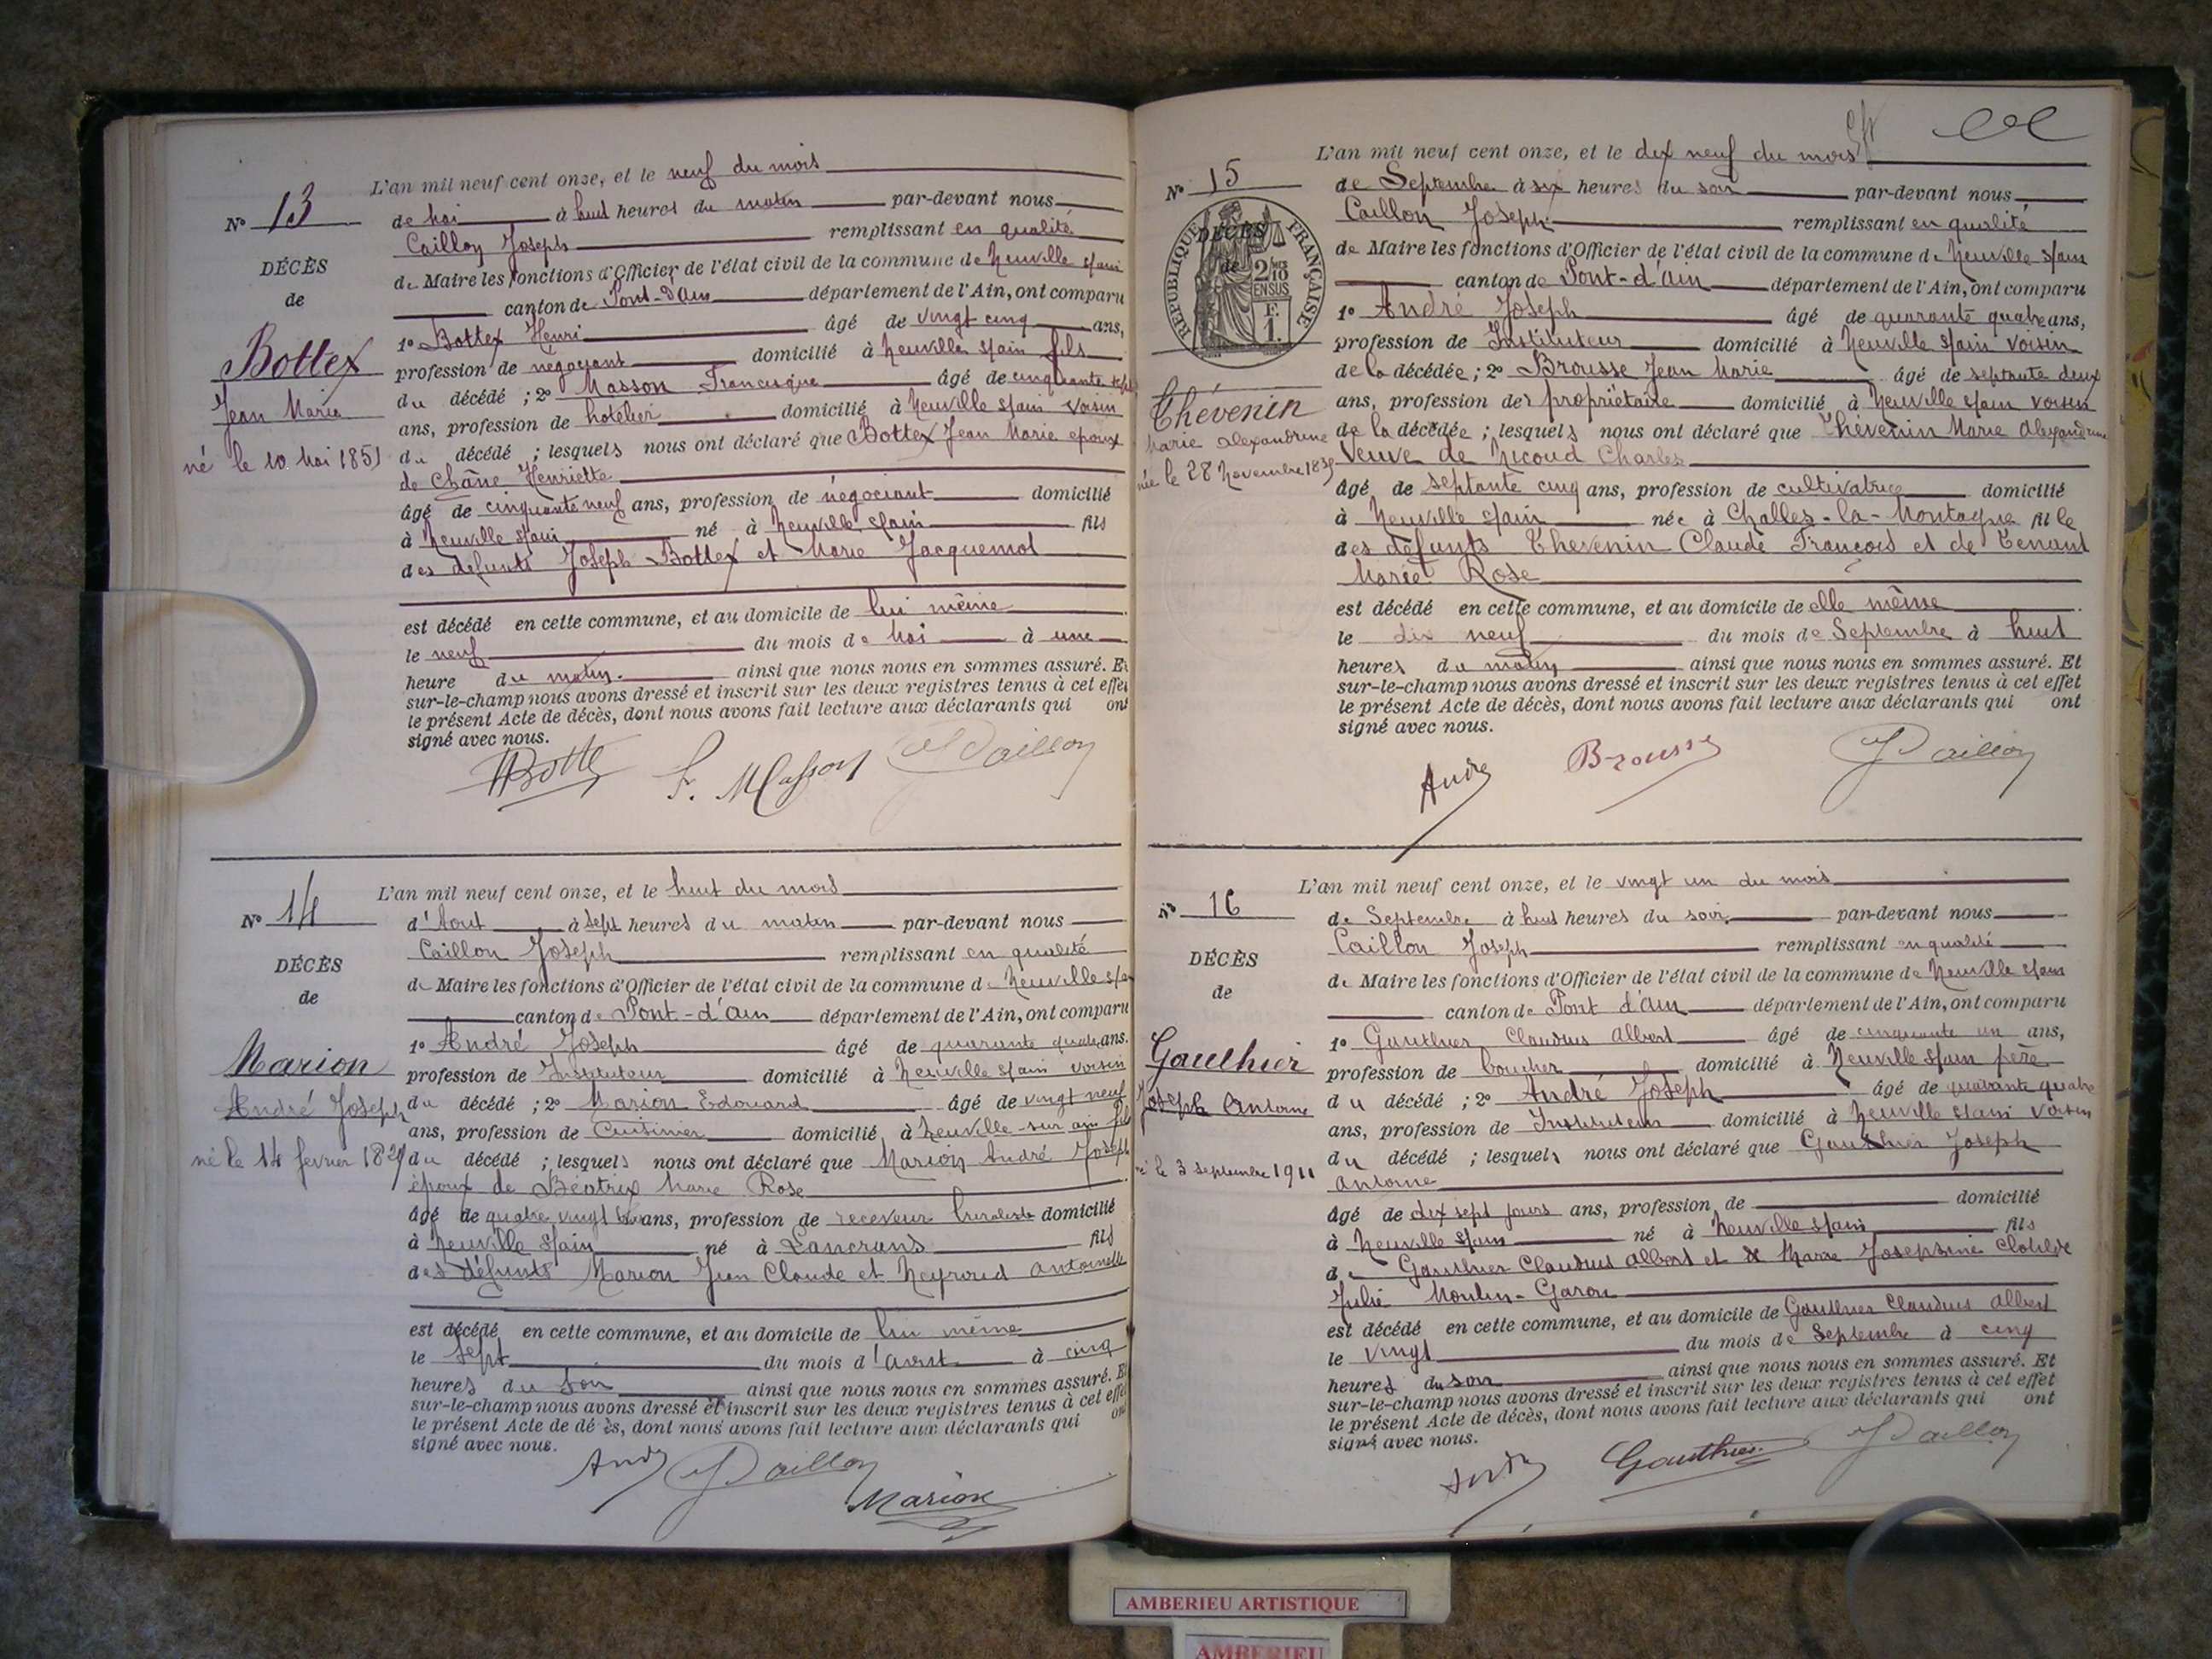 L'an mil neuf cent onze, et le neuf du mois
No 13
de Mai à huit heures du matin par-devant nous
Caillon Joseph remplissant en qualité
DÉCÈS
de
Bottex
Jean Marie
né le 10 Mai 1851
de Maire les fonctions d'Officier de l'état civil de la commune de Neuville s/ain
canton de Pont-d'Ain département de l'Ain, ont comparu
1o Bottex Henri âgé de vingt cinq ans,
profession de négociant domicilié à Neuville s/ain fils
du décédé ; 2o Masson Francisque âgé de cinquante sept
ans, profession de hotelier domicilié à Neuville s/ain voisin
du décédé ; lesquels nous ont déclaré que Bottex Jean Marie epoux
de Châne Henriette
âgé de cinquante neuf ans, profession de négociant domicilié
à Neuville s/ain né à Neuville s/ain fils
des defunts Joseph Bottex et Marie Jacquemot
est décédé en cette commune, et au domicile de lui même
le neuf du mois de Mai à une
heure du matin. ainsi que nous nous en sommes assuré. Et
sur-le-champ nous avons dressé et inscrit sur les deux registres tenus à cet effet
le présent Acte de décès, dont nous avons fait lecture aux déclarants qui ont
signé avec nous.
HBotte F. Masson JCaillon
L'an mil neuf cent onze, et le huit du mois
No 14
d'Aout à sept heures du matin par-devant nous
Caillon Joseph remplissant en qualité
DÉCÈS
de
Marion
André Joseph
né le 14 fevrier 1829
de Maire les fonctions d'Officier de l'état civil de la commune de Neuville s/ain
canton de Pont-d'ain département de l'Ain, ont comparu
1o André Joseph âgé de quarante quatre ans.
profession de Instituteur domicilié à Neuville s/ain voisin
du décédé ; 2o Marion Edouard âgé de vingt neuf
ans, profession de Cuisinier domicilié à Neuville-sur-ain fils
du décédé ; lesquels nous ont déclaré que Marion André Joseph
époux de Béatrix Marie Rose
âgé de quatre vingt ans, profession de receveur buraliste domicilié
à Neuville s/ain né à Lancrans fils
des défunts Marion Jean Claude et Neyroud Antoinette
est décédé en cette commune, et au domicile de lui même
le sept du mois d'aout à cinq
heures du soir ainsi que nous nous en sommes assuré. Et
sur-le-champ nous avons dressé et inscrit sur les deux registres tenus à cet effet
le présent Acte de dé ès, dont nous avons fait lecture aux déclarants qui ont
signé avec nous.
André JCaillon
Marion
L'an mil neuf cent onze, et le dix neuf du mois
No 15
de Septembre à six heures du soir par-devant nous
Caillon Joseph remplissant en qualité
RÉPUBLIQUE FRANÇAISE
DÉCÈS
de
2/10 EN SUS
F. 1.
Thévenin
Marie alexandrine
née le 28 Novembre 1835
de Maire les fonctions d'Officier de l'état civil de la commune de Neuville s/ain
canton de Pont-d'ain département de l'Ain, ont comparu
1o André Joseph âgé de quarante quatre ans,
profession de Instituteur domicilié à Neuville s/ain voisin
de la décédée ; 2o Brousse Jean Marie âgé de septante deux
ans, profession de propriétaire domicilié à Neuville s/ain voisin
de la décédée ; lesquels nous ont déclaré que Thévenin Marie Alexandrine
veuve de Nicoud Charles
âgé de septante cinq ans, profession de cultivatrice domicilié
à Neuville s/ain née à Challes-la-Montagne fille
des défunts Thevenin Claude François et de Tenant
Marie Rose
est décédé en cette commune, et au domicile de elle même
le dix neuf du mois de Septembre à huit
heures du matin ainsi que nous nous en sommes assuré. Et
sur-le-champ nous avons dressé et inscrit sur les deux registres tenus à cet effet
le présent Acte de décès, dont nous avons fait lecture aux déclarants qui ont
signé avec nous.
André Brousse JCaillon
L'an mil neuf cent onze, et le vingt un du mois
No 16
de Septembre à huit heures du soir par-devant nous
Caillon Joseph remplissant en qualité
DÉCÈS
de
Gauthier
Joseph Antoine
né le 3 septembre 1911
de Maire les fonctions d'Officier de l'état civil de la commune de Neuville s/ain
canton de Pont d'ain département de l'Ain, ont comparu
1o Gauthier Claudius Albert âgé de cinquante un ans,
profession de boucher domicilié à Neuville s/ain père
du décédé ; 2o André Joseph âgé de quarante quatre
ans, profession de Instituteur domicilié à Neuville s/ain voisin
du décédé ; lesquels nous ont déclaré que Gauthier Joseph
Antoine
âgé de dix sept jours ans, profession de domicilié
à Neuville s/ain né à Neuville s/ain fils
de Gauthier Claudius Albert et de Marie Josephine Clotilde
Julie Moulin-Garon
est décédé en cette commune, et au domicile de Gauthier Claudius Albert
le vingt du mois de Septembre à cinq
heures du soir ainsi que nous nous en sommes assuré. Et
sur-le-champ nous avons dressé et inscrit sur les deux registres tenus à cet effet
le présent Acte de décès, dont nous avons fait lecture aux déclarants qui ont
signé avec nous.
André Gauthier JCaillon
AMBERIEU ARTISTIQUE
AMBERIEU